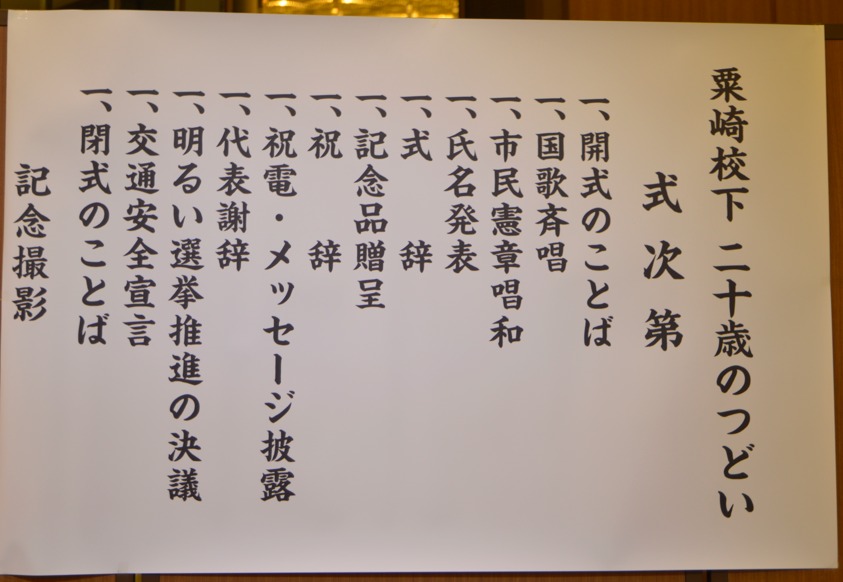 粟崎校下 二十歳のつどい
式次第
一、開式のことば
一、国歌斉唱
一、市民憲章唱和
一、氏名発表
一、式　　辞
一、記念品贈呈
一、祝　　辞
一、祝電・メッセージ披露
一、代表謝辞
一、明るい選挙推進の決議
一、交通安全宣言
一、閉式のことば
記念撮影